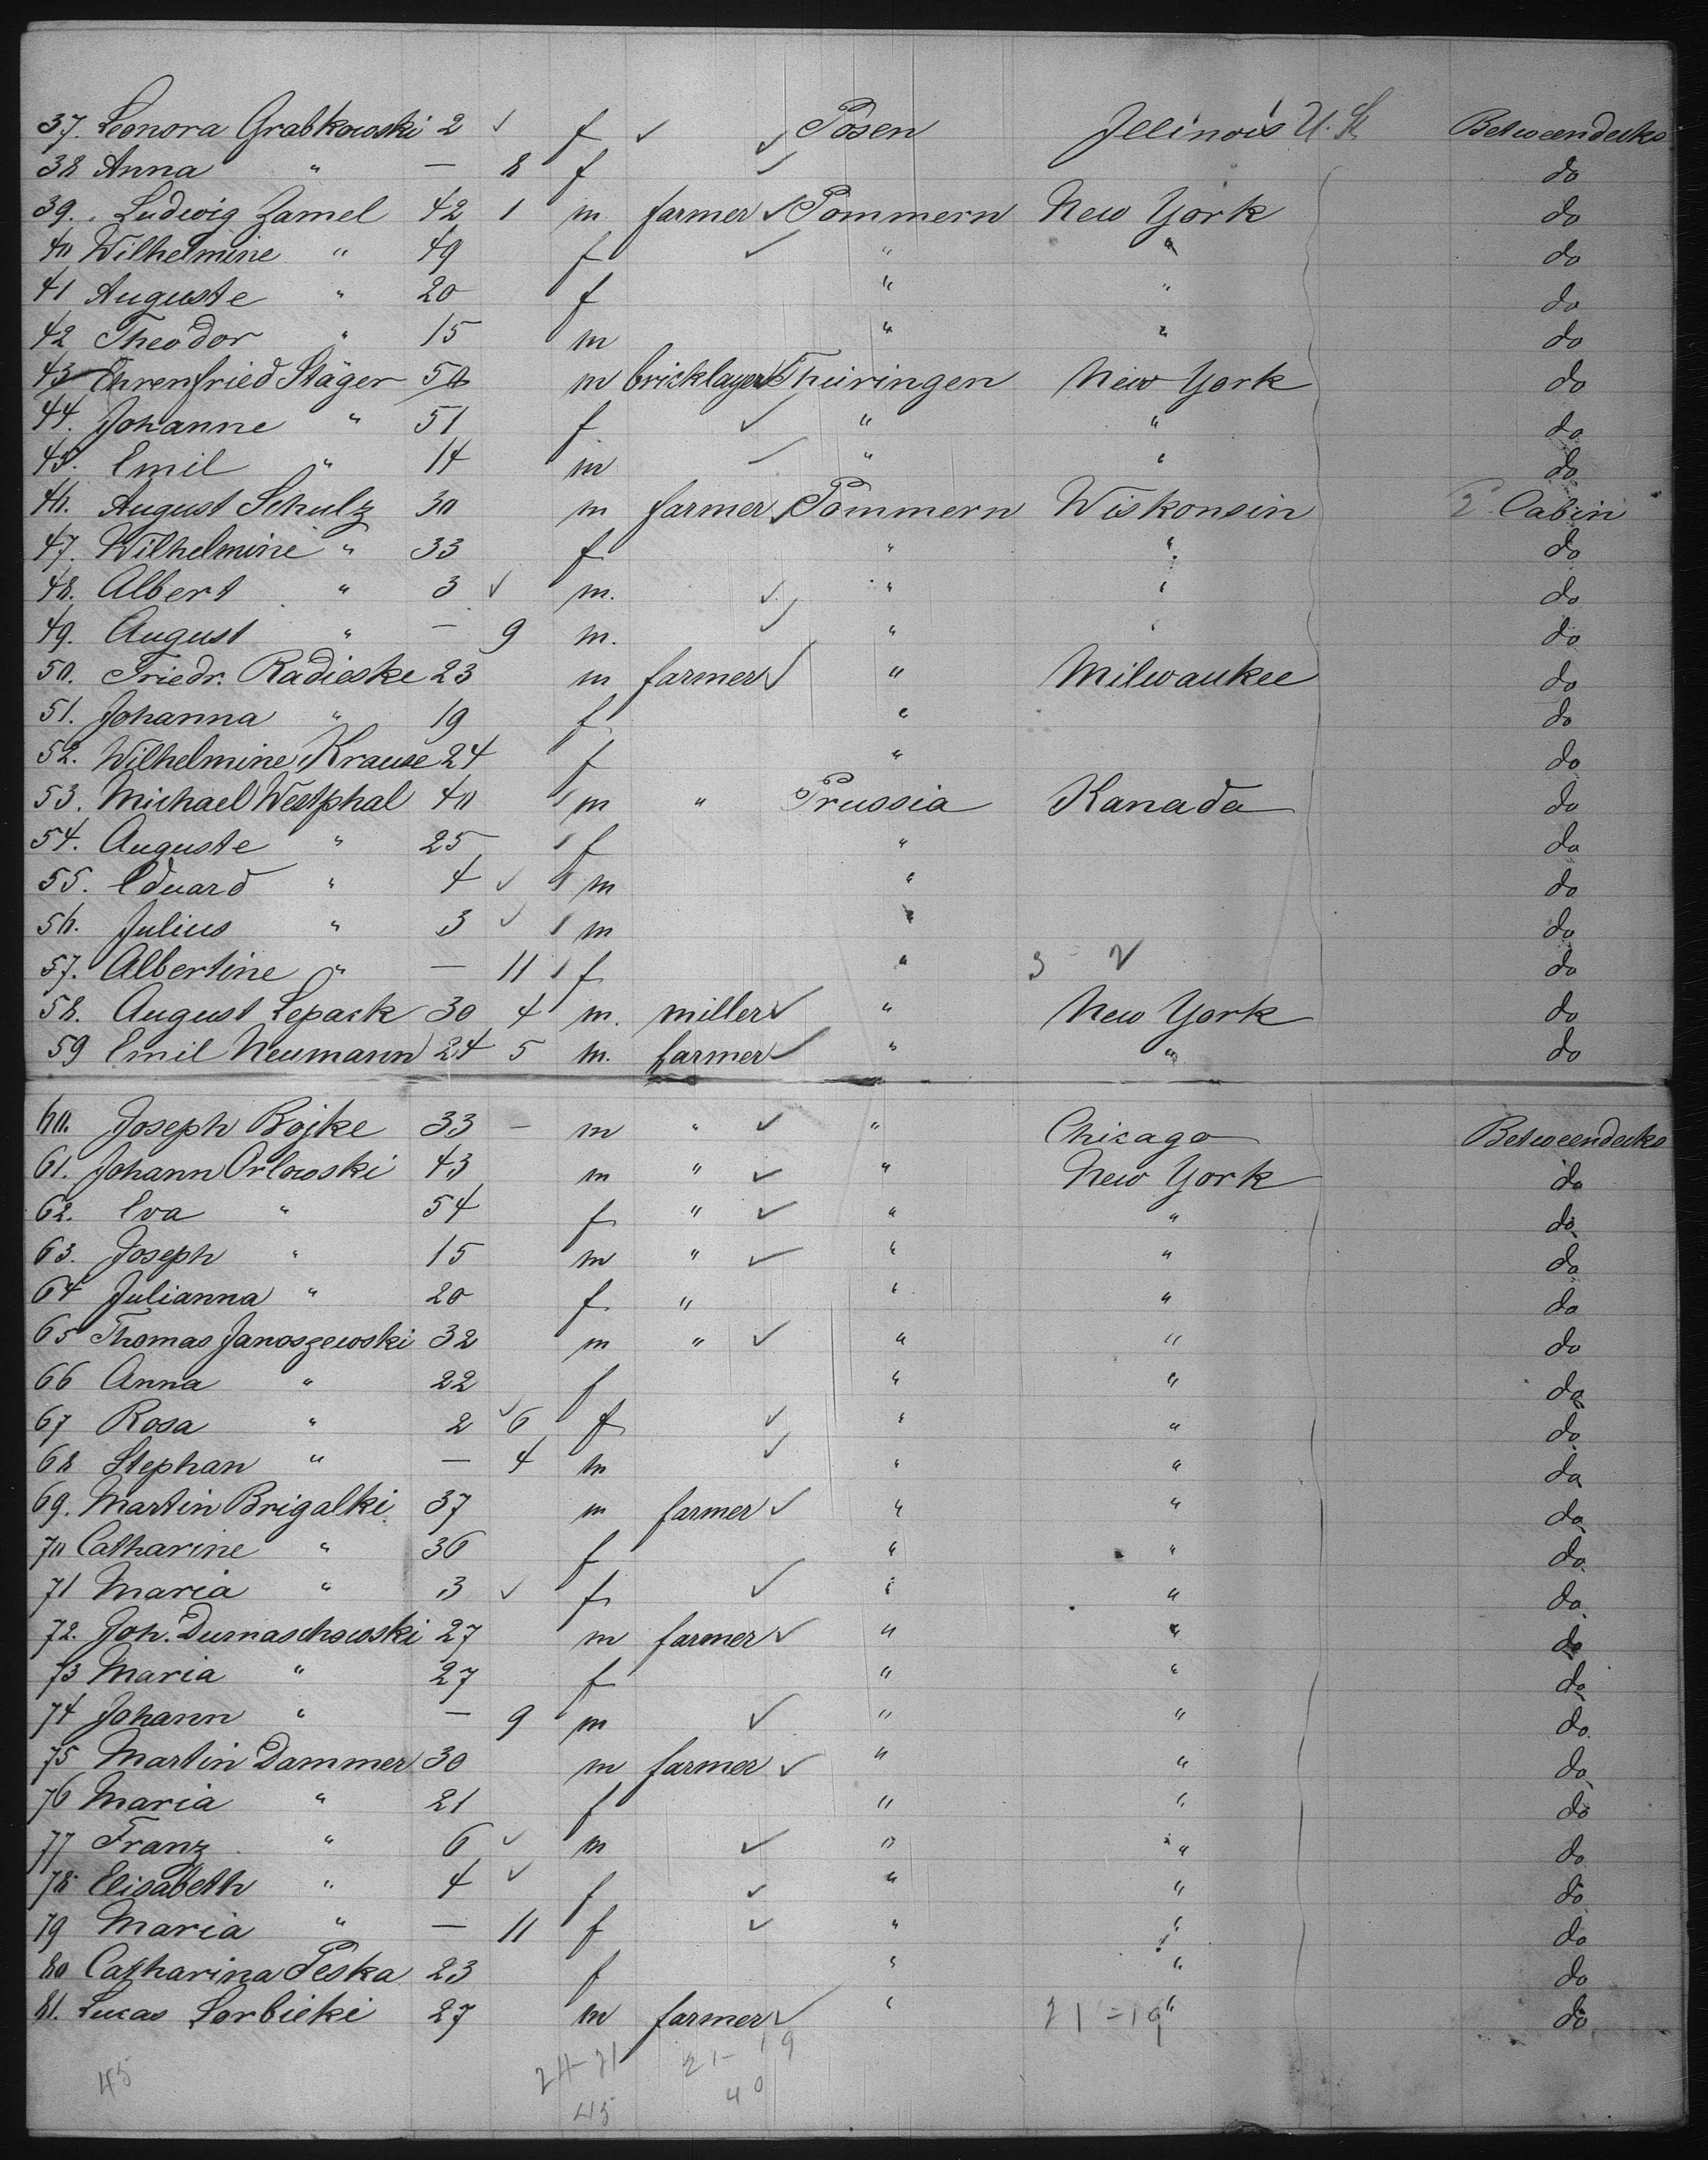 37. Leonora Grabkowski 2 ✓ f ✓ ✓ Posen Jllinois U. St. Betweendecks
38 Anna " — 8 f ✓ do
39. Ludwig Zamel 42 1 m. farmer ✓ Pommern New York do
40 Wilhelmine " 49 f ✓ " " do
41 Auguste " 20 f " " do
42 Theodor " 15 m " " do
43 Ehrenfried Stäger 50 m bricklayer ✓ Thüringen New York do
44. Johanne " 51 f ✓ " " do
45. Emil " 14 m ✓ " " do
46. August Schulz 30 m farmer ✓ Pommern Wiskonsin 2. Cabin
47. Wilhelmine " 33 f " " do
48. Albert " 3 ✓ m. ✓ " " do
49. August " — 9 m. ✓ " " do
50. Friedr. Radieske 23 m farmer ✓ " Milwaukee do
51. Johanna " 19 f " do
52. Wilhelmine Krause 24 f " do
53. Michael Westphal 40 m " Prussia Kanada do
54. Auguste " 25 f " do
55. Eduard " 4 ✓ m " do
56. Julius " 3 ✓ m " do
57. Albertine " — 11 f " 3 2 do
58. August Lepack 30 4 m. miller ✓ " New York do
59 Emil Neumann 24 5 m. farmer ✓ " " do
60. Joseph Bojke 33 — m " ✓ " Chicago Betweendecks
61. Johann Orlowski 43 m " ✓ " New York do
62. Eva " 54 f " ✓ " " do
63. Joseph " 15 m " ✓ " " do
64 Julianna " 20 f " " " do
65 Thomas Janoszewski 32 m " ✓ " " do
66 Anna " 22 f " " do
67 Rosa " 2 ✓ 6 f ✓ " " do
68 Stephan " — 4 m ✓ " " do
69. Martin Brigalki 37 m farmer ✓ " " do
70 Catharine " 36 f " " do
71 Maria " 3 ✓ f ✓ " " do
72. Joh. Dumaschowski 27 m farmer ✓ " " do
73 Maria " 27 f " " do
74 Johann " — 9 m ✓ " " do
75 Martin Dammer 30 m farmer ✓ " " do
76 Maria " 21 f " " do
77 Franz " 6 ✓ m ✓ " " do
78 Elisabeth " 4 ✓ f ✓ " " do
79 Maria " — 11 f ✓ " " do
80 Catharina Peska 23 f " " do
81. Lucas Sorbicki 27 m farmer ✓ " 21=19 " do
45 24-21 21-19
45 40